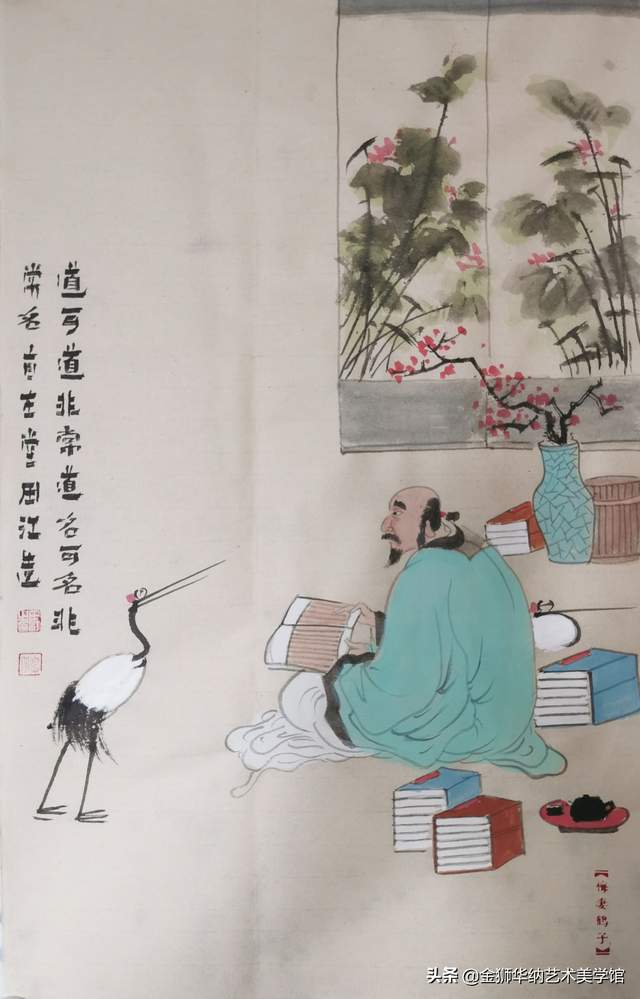 道可道非常道名可名非
常名 堂周江
【梅妻鹤子】
头条 @金狮华纳艺术美学馆